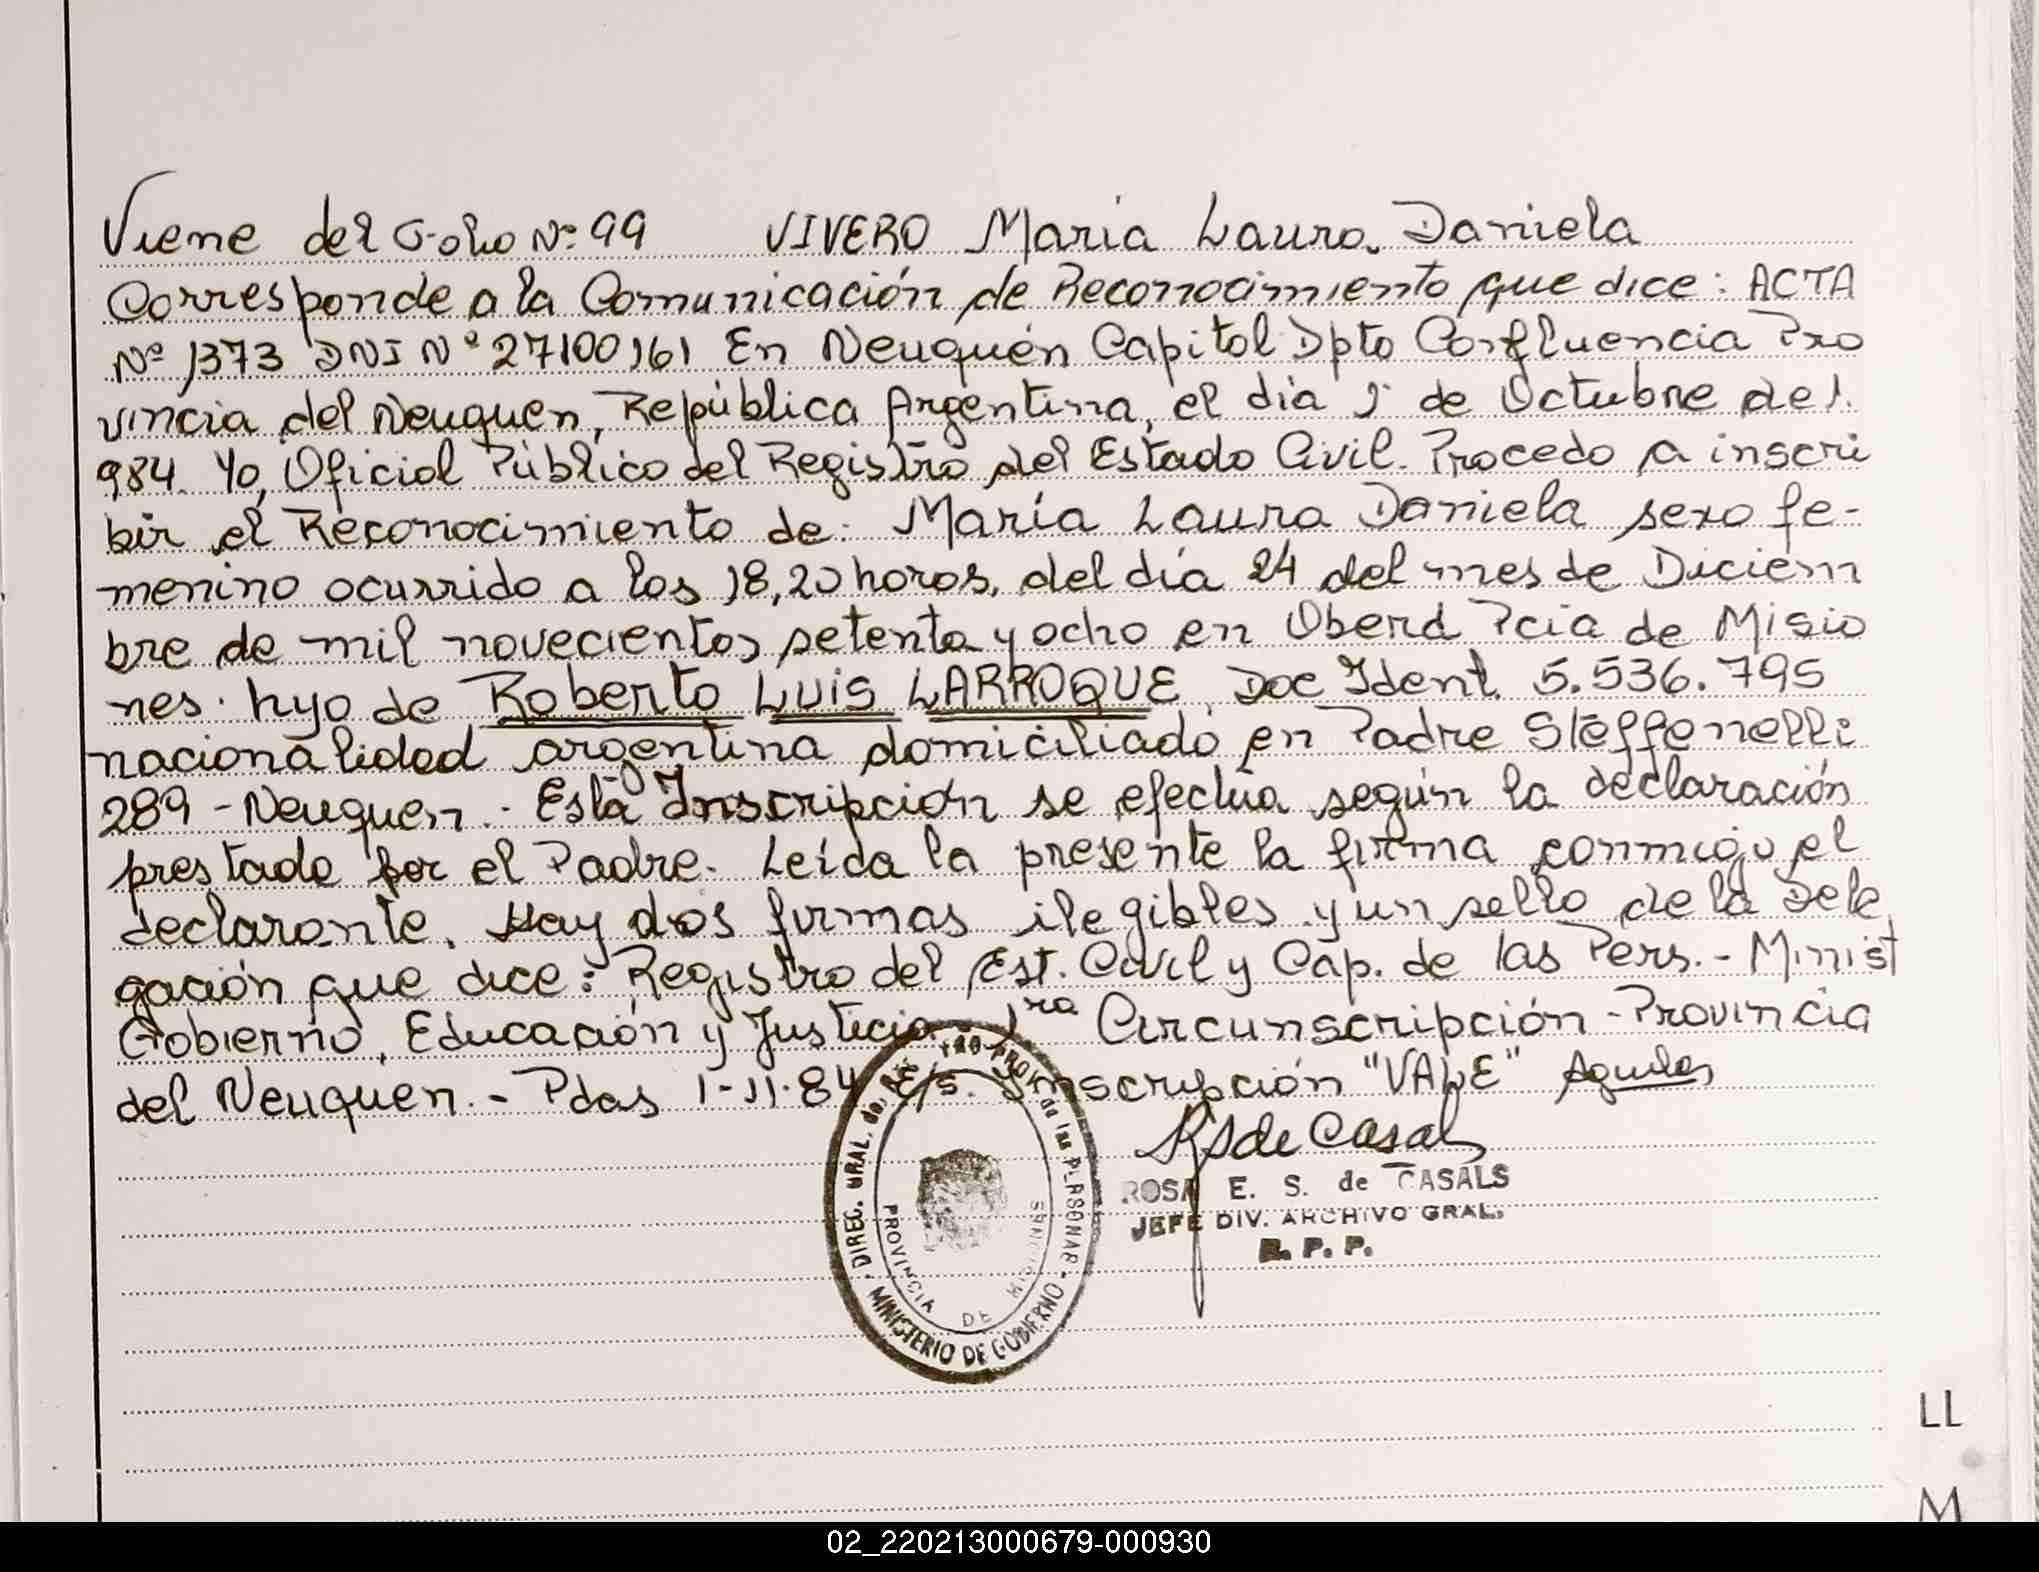 Viene del Folio Nº 99 VIVERO Maria Laura Daniela
Corresponde a la Comunicación de Reconocimiento que dice: ACTA
Nº 1373 DNI Nº 27100161 En Neuquén Capital Dpto Confluencia Pro
vincia del Neuquen, República Argentina, el día 1º de Octubre de 1.
984. Yo, Oficial Público del Registro del Estado Civil. Procedo a inscri
bir el Reconocimiento de: María Laura Daniela sexo fe-
menino ocurrido a los 18,20 horas, del día 24 del mes de Diciem
bre de mil novecientos setenta y ocho en Oberá Pcia de Misio
nes. hijo de Roberto Luis LARROQUE Doc Ident. 5.536.795
nacionalidad argentina domiciliado en Padre Steffenelli
289 - Neuquen. - Esta Inscripción se efectúa según la declaración
prestada por el Padre. Leída la presente la firma conmigo el
declarante. Hay dos firmas ilegibles y un sello de la Dele
gación que dice: Registro del Est. Civil y Cap. de las Pers. - Minist
Gobierno, Educación y Justicia. 1ra Circunscripción - Provincia
del Neuquen. - Pdas 1-11-84 E/s. Inscripción "VALE"
RSde Casals
ROSA E. S. de CASALS
JEFE DIV. ARCHIVO GRAL.
R. P. P.
DIREC. GRAL. de PROV. de las PERSONAS
PROVINCIA DE MISIONES
MINISTERIO DE GOBIERNO
LL
M
02_220213000679-000930